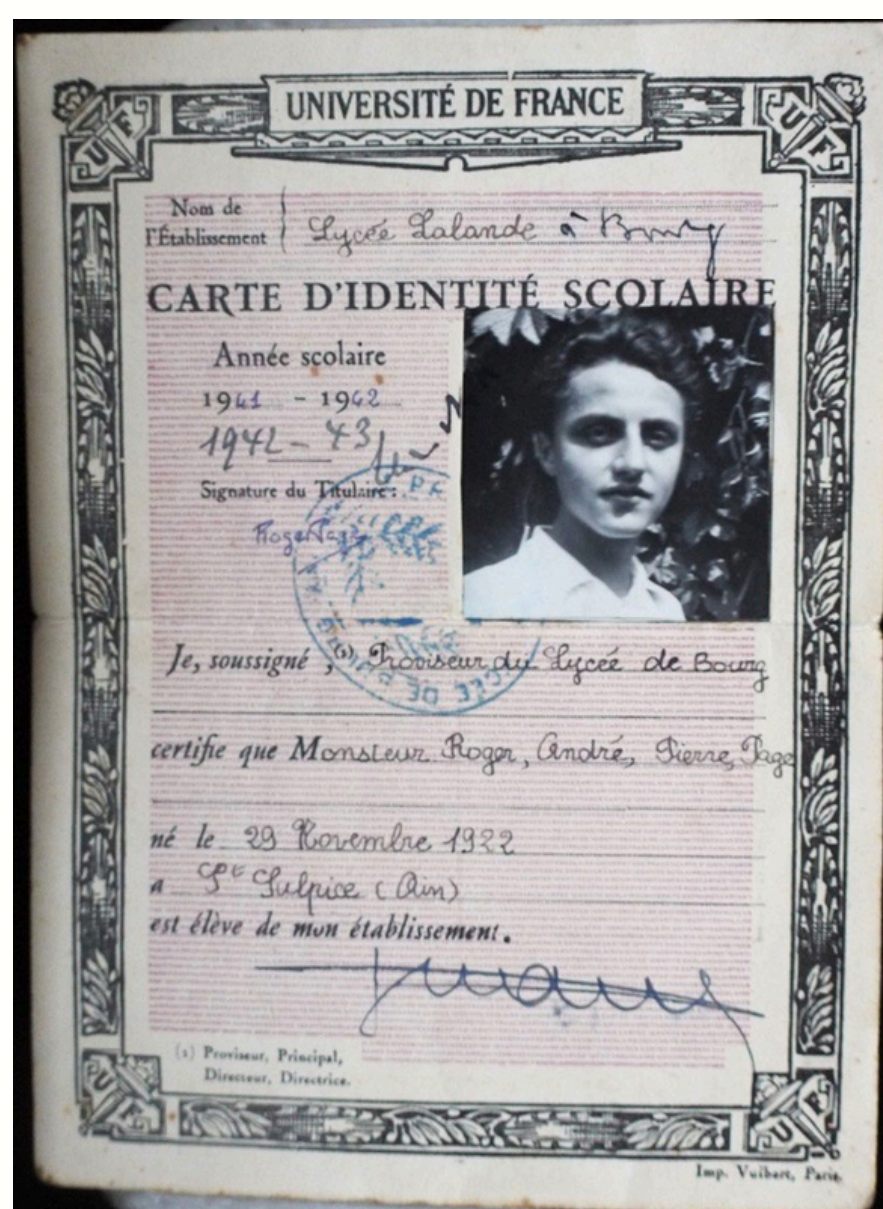 UNIVERSITÉ DE FRANCE
UF
UF
Nom de
l'Établissement
Lycée Lalande à Bourg
CARTE D'IDENTITÉ SCOLAIRE
Année scolaire
1941 - 1942
1942 - 43
Signature du Titulaire :
Roger Page
Je, soussigné, (1) Proviseur du Lycée de Bourg
certifie que Monsieur Roger, André, Pierre, Page
né le 29 Novembre 1922
a St Sulpice (Ain)
est élève de mon établissement.
(1) Proviseur, Principal,
Directeur, Directrice.
UF
UF
Imp. Vuibert, Paris.